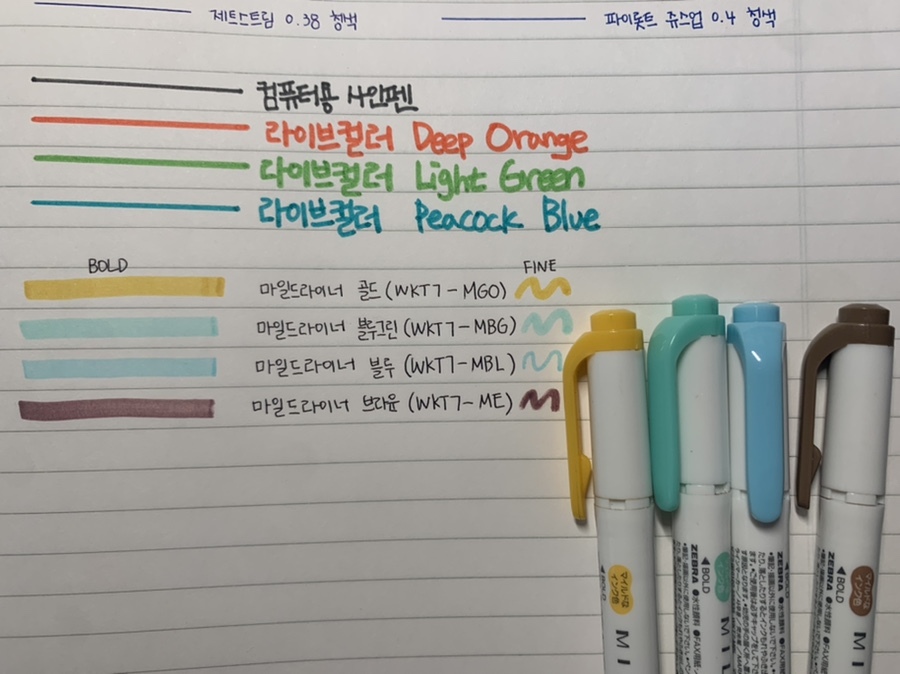 제트스트림 0.38 청색
파이롯트 쥬스업 0.4 청색
컴퓨터용 사인펜
라이브컬러 Deep Orange
라이브컬러 Light Green
라이브컬러 Peacock Blue
BOLD FINE
마일드라이너 골드 (WKT7-MGO)
마일드라이너 블루그린 (WKT7-MBG)
마일드라이너 블루 (WKT7-MBL)
마일드라이너 브라운 (WKT7-ME)
マイルドな
インク色
MI
◀BOLD
ZEBRA ●水性顔料
MIL
◀BOLD
ZEBRA ●水性顔料
マイルドな
インク色
MI